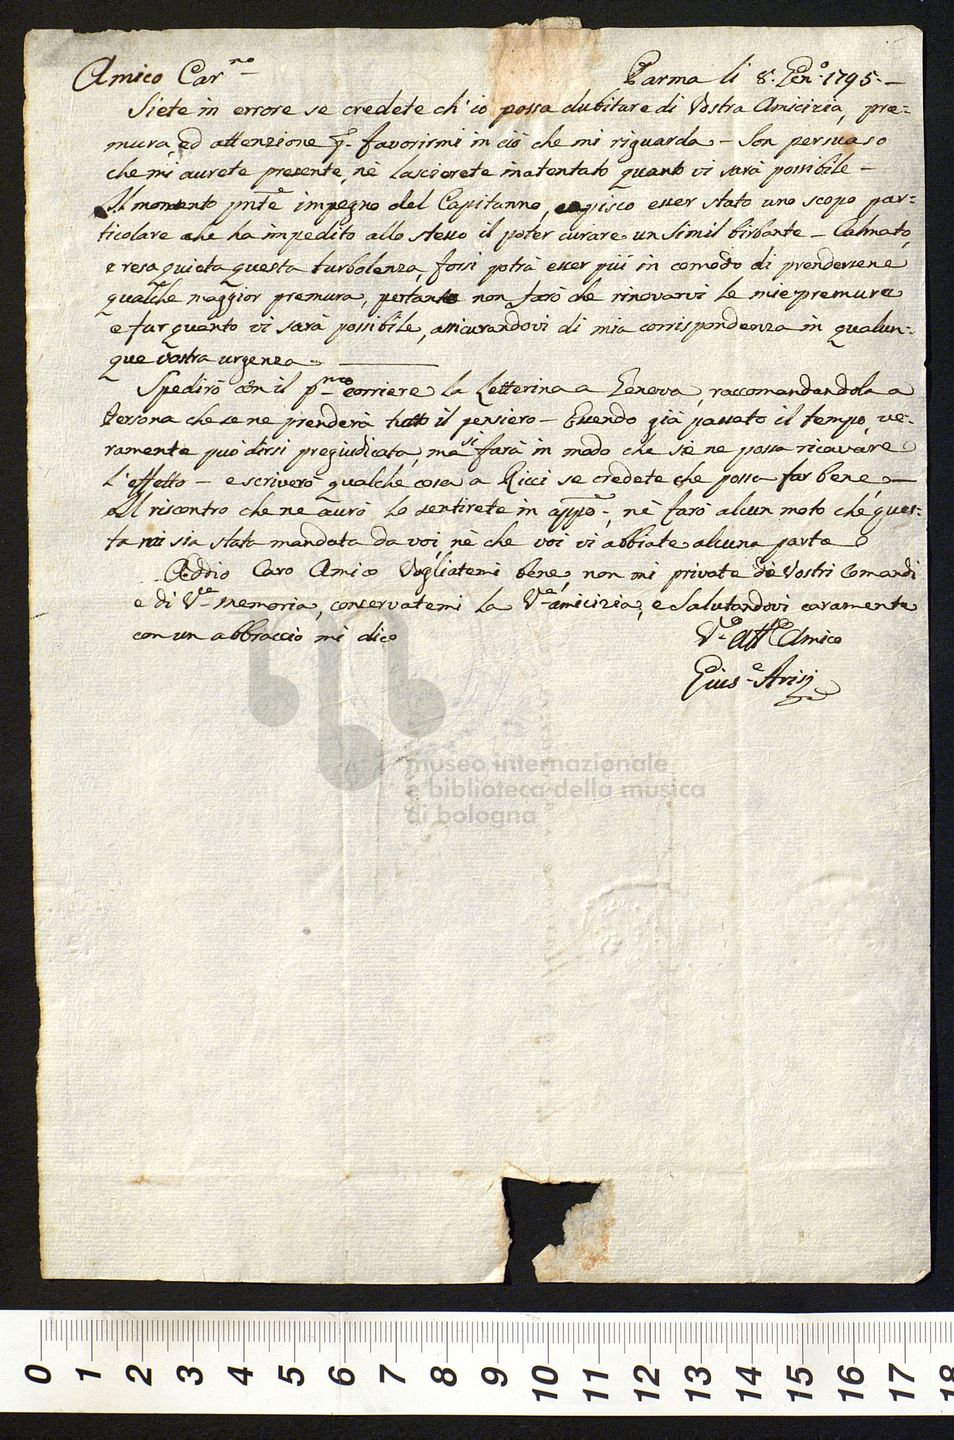 Amico Car.mo Parma li 8. Gen.o 1795.—
Siete in errore se credete ch' io possa dubitare di Vostra Amicizia, pre=
mura, ed attenzione p. favorirmi in ciò che mi riguarda — Son persuaso
che mi aurete presente, nè lascierete intentato quanto vi sarà possibile —
Al momento pnte impegno del Capitanno, capisco esser stato uno scopo par=
ticolare che ha impedito allo stesso il poter curare un simil birbante — Calmata,
e resa quieta questa turbolenza, forsi potrà esser più in comodo di prendersene
qualche maggior premura, pertanto non farò che rinovarvi le mie premure
e far quanto vi sarà possibile, assicurandovi di mia corrispondenza in qualun=
que vostra urgenza.
Spedirò con il p.mo corriere la Letterina a Genova, raccomandandola a
Persona che se ne prenderà tutto il pensiero — Essendo già passato il tempo, ve=
ramente può dirsi pregiudicata, ma si farà in modo che se ne possa ricavare
l'effetto — e scriverò qualche cosa a Ricci se credete che possa far bene, —
Il riscontro che ne aurò lo sentirete in appo, nè farò alcun moto che ques=
ta mi sia stata mandata da voi, nè che voi vi abbiate alcuna parte
Addio Caro Amico Vogliatemi bene, non mi private de Vostri Comandi
e di V.a memoria, conservatemi la V.a amicizia, e salutandovi caramente
con un abbraccio mi dico
V.o Aff.o Amico
Gius.e Arisi
museo internazionale
e biblioteca della musica
di bologna
0 1 2 3 4 5 6 7 8 9 10 11 12 13 14 15 16 17 18